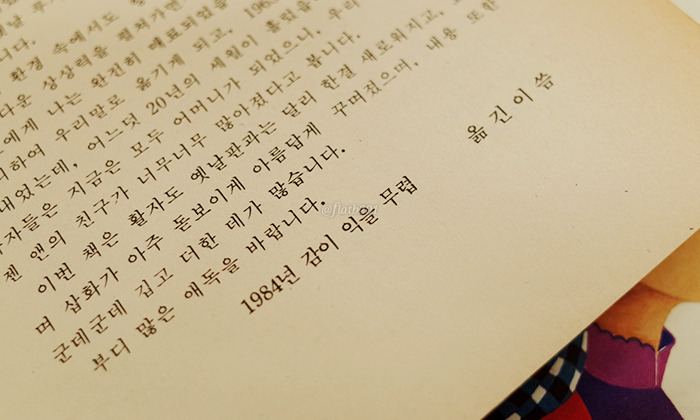 환경 속에서도
다운 상상력을 펼쳐가면
에게 나는 완전히 매료되었을
리하여 우리말로 옮기게 되고, 196
내었는데, 어느덧 20년의 세월이 흘렀
자들은 지금은 모두 어머니가 되었으니, 우리
젠 앤의 친구가 너무너무 많아졌다고 봅니다.
이번 책은 활자도 옛날판과는 달리 한결 새로워지고,
며 삽화가 아주 돋보이게 아름답게 꾸며졌으며, 내용 또한
군데군데 깁고 더한 데가 많습니다.
부디 많은 애독을 바랍니다.
1984년 감이 익을 무렵
옮긴이 씀